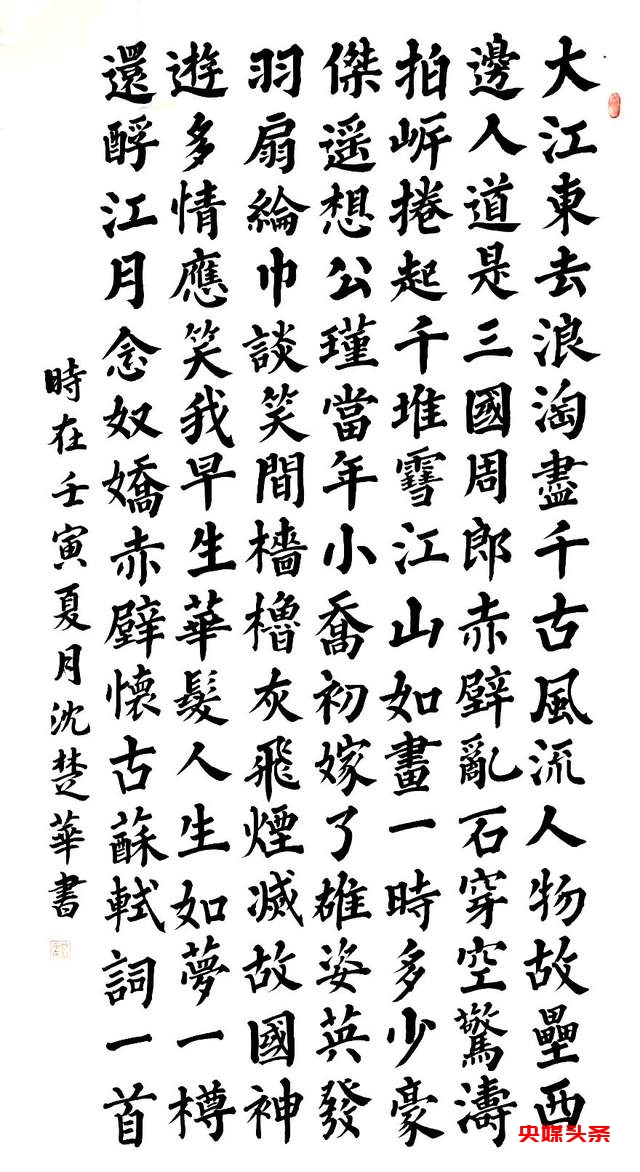 大江東去浪淘盡千古風流人物故壘西
邊人道是三國周郎赤壁亂石穿空驚濤
拍岍捲起千堆雪江山如畫一時多少豪
傑遥想公瑾當年小喬初嫁了雄姿英發
羽扇綸巾談笑間檣櫓灰飛煙滅故國神
遊多情應笑我早生華髮人生如夢一樽
還酹江月念奴嬌赤壁懷古蘇軾詞一首
時在壬寅夏月沈楚華書
央媒头条